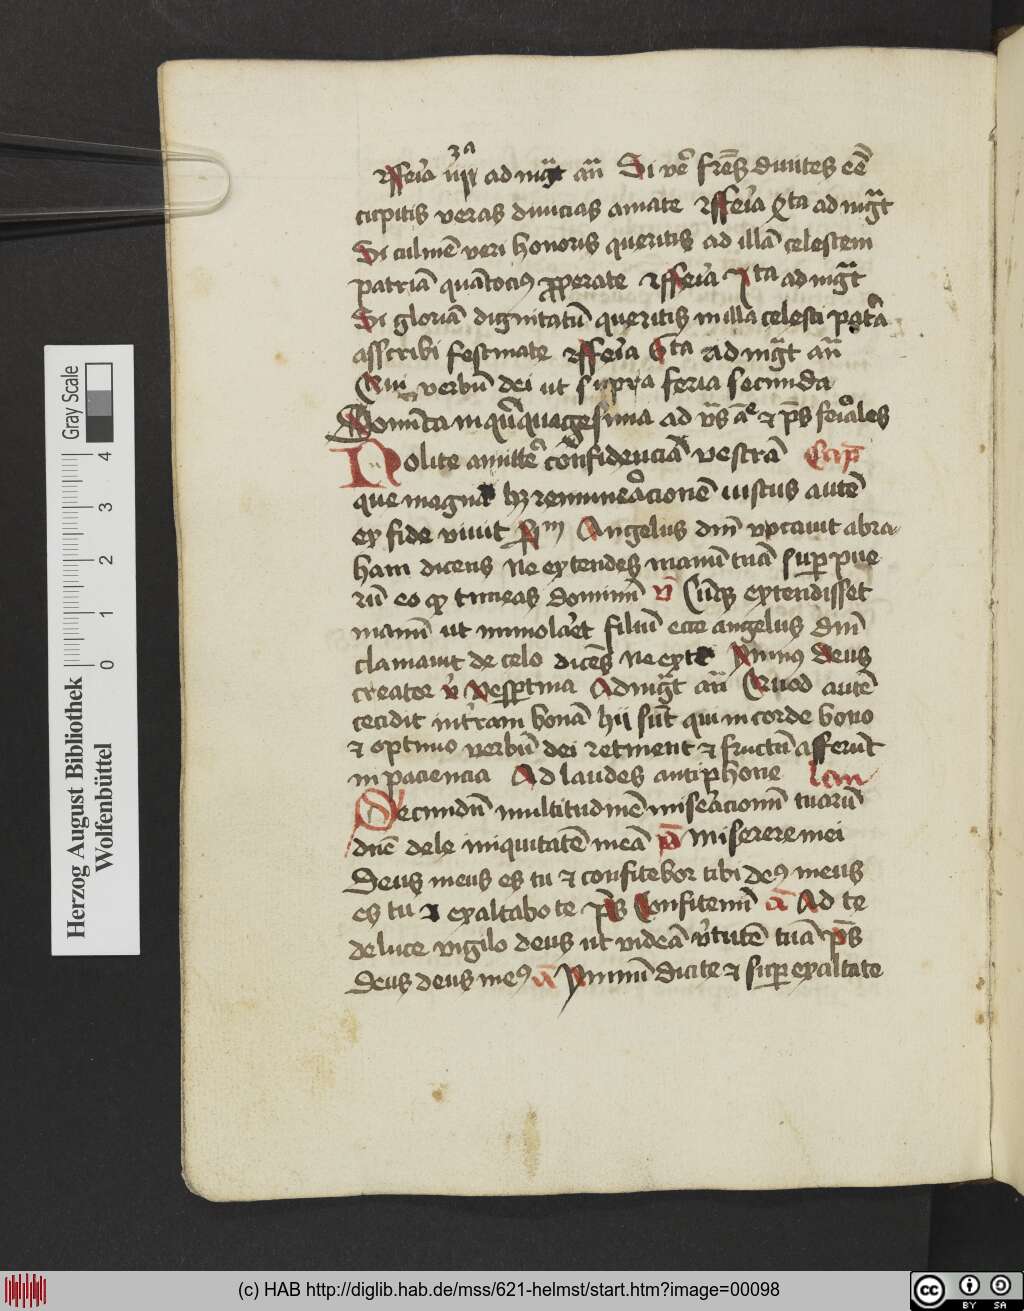 ffeia iiij ad mgt añ Si vero frēs divites eē
cupitis veras divicias amate ffeīa qta ad mgt
Si culmē veri honoris queritis ad illā celestem
patriā quātocius properate ffeīa ad mgt
Si gloriā dignitatū queritis in illa celesti
asscribi festinate ffeīa ad mgt añ
Qui verbū dei ut supra feria secunda
Domīca in quīquagesima ad
Nolite amittere confidenciā vestrā Cap
que magnā remuneracionē iustus autē
ex fide vivit Angelus dnī vocavit abra
ham dicens ne extendes manū tuā sup pue
rū eo timeas dominū Cūque extendisset
manū ut immolaret filiū ecce angelus dnī
clamavit de celo dicēs ne exte ymnus deus
creator Vespertina Ad mgt añ Quod autē
cecidit in terram bonā hij sūt qui in corde bono
et optimo verbū dei retinent et fructū afferūt
in paciencia Ad laudes antiphone lau
Secundū multitudinē miseracionū tuarū
dnē dele iniquitatē meā Miserere mei
Deus meus es tu et confitebor tibi deus meus
es tu et exaltabo te ps Confitemī a Ad te
de luce vigilo deus ut videā virtutē tuā ps
Deus deus meus a Ymnū dicite et supexaltate
Herzog August Bibliothek
Wolfenbüttel
Gray Scale
0 1 2 3 4
(c) HAB http://diglib.hab.de/mss/621-helmst/start.htm?image=00098
cc BY SA